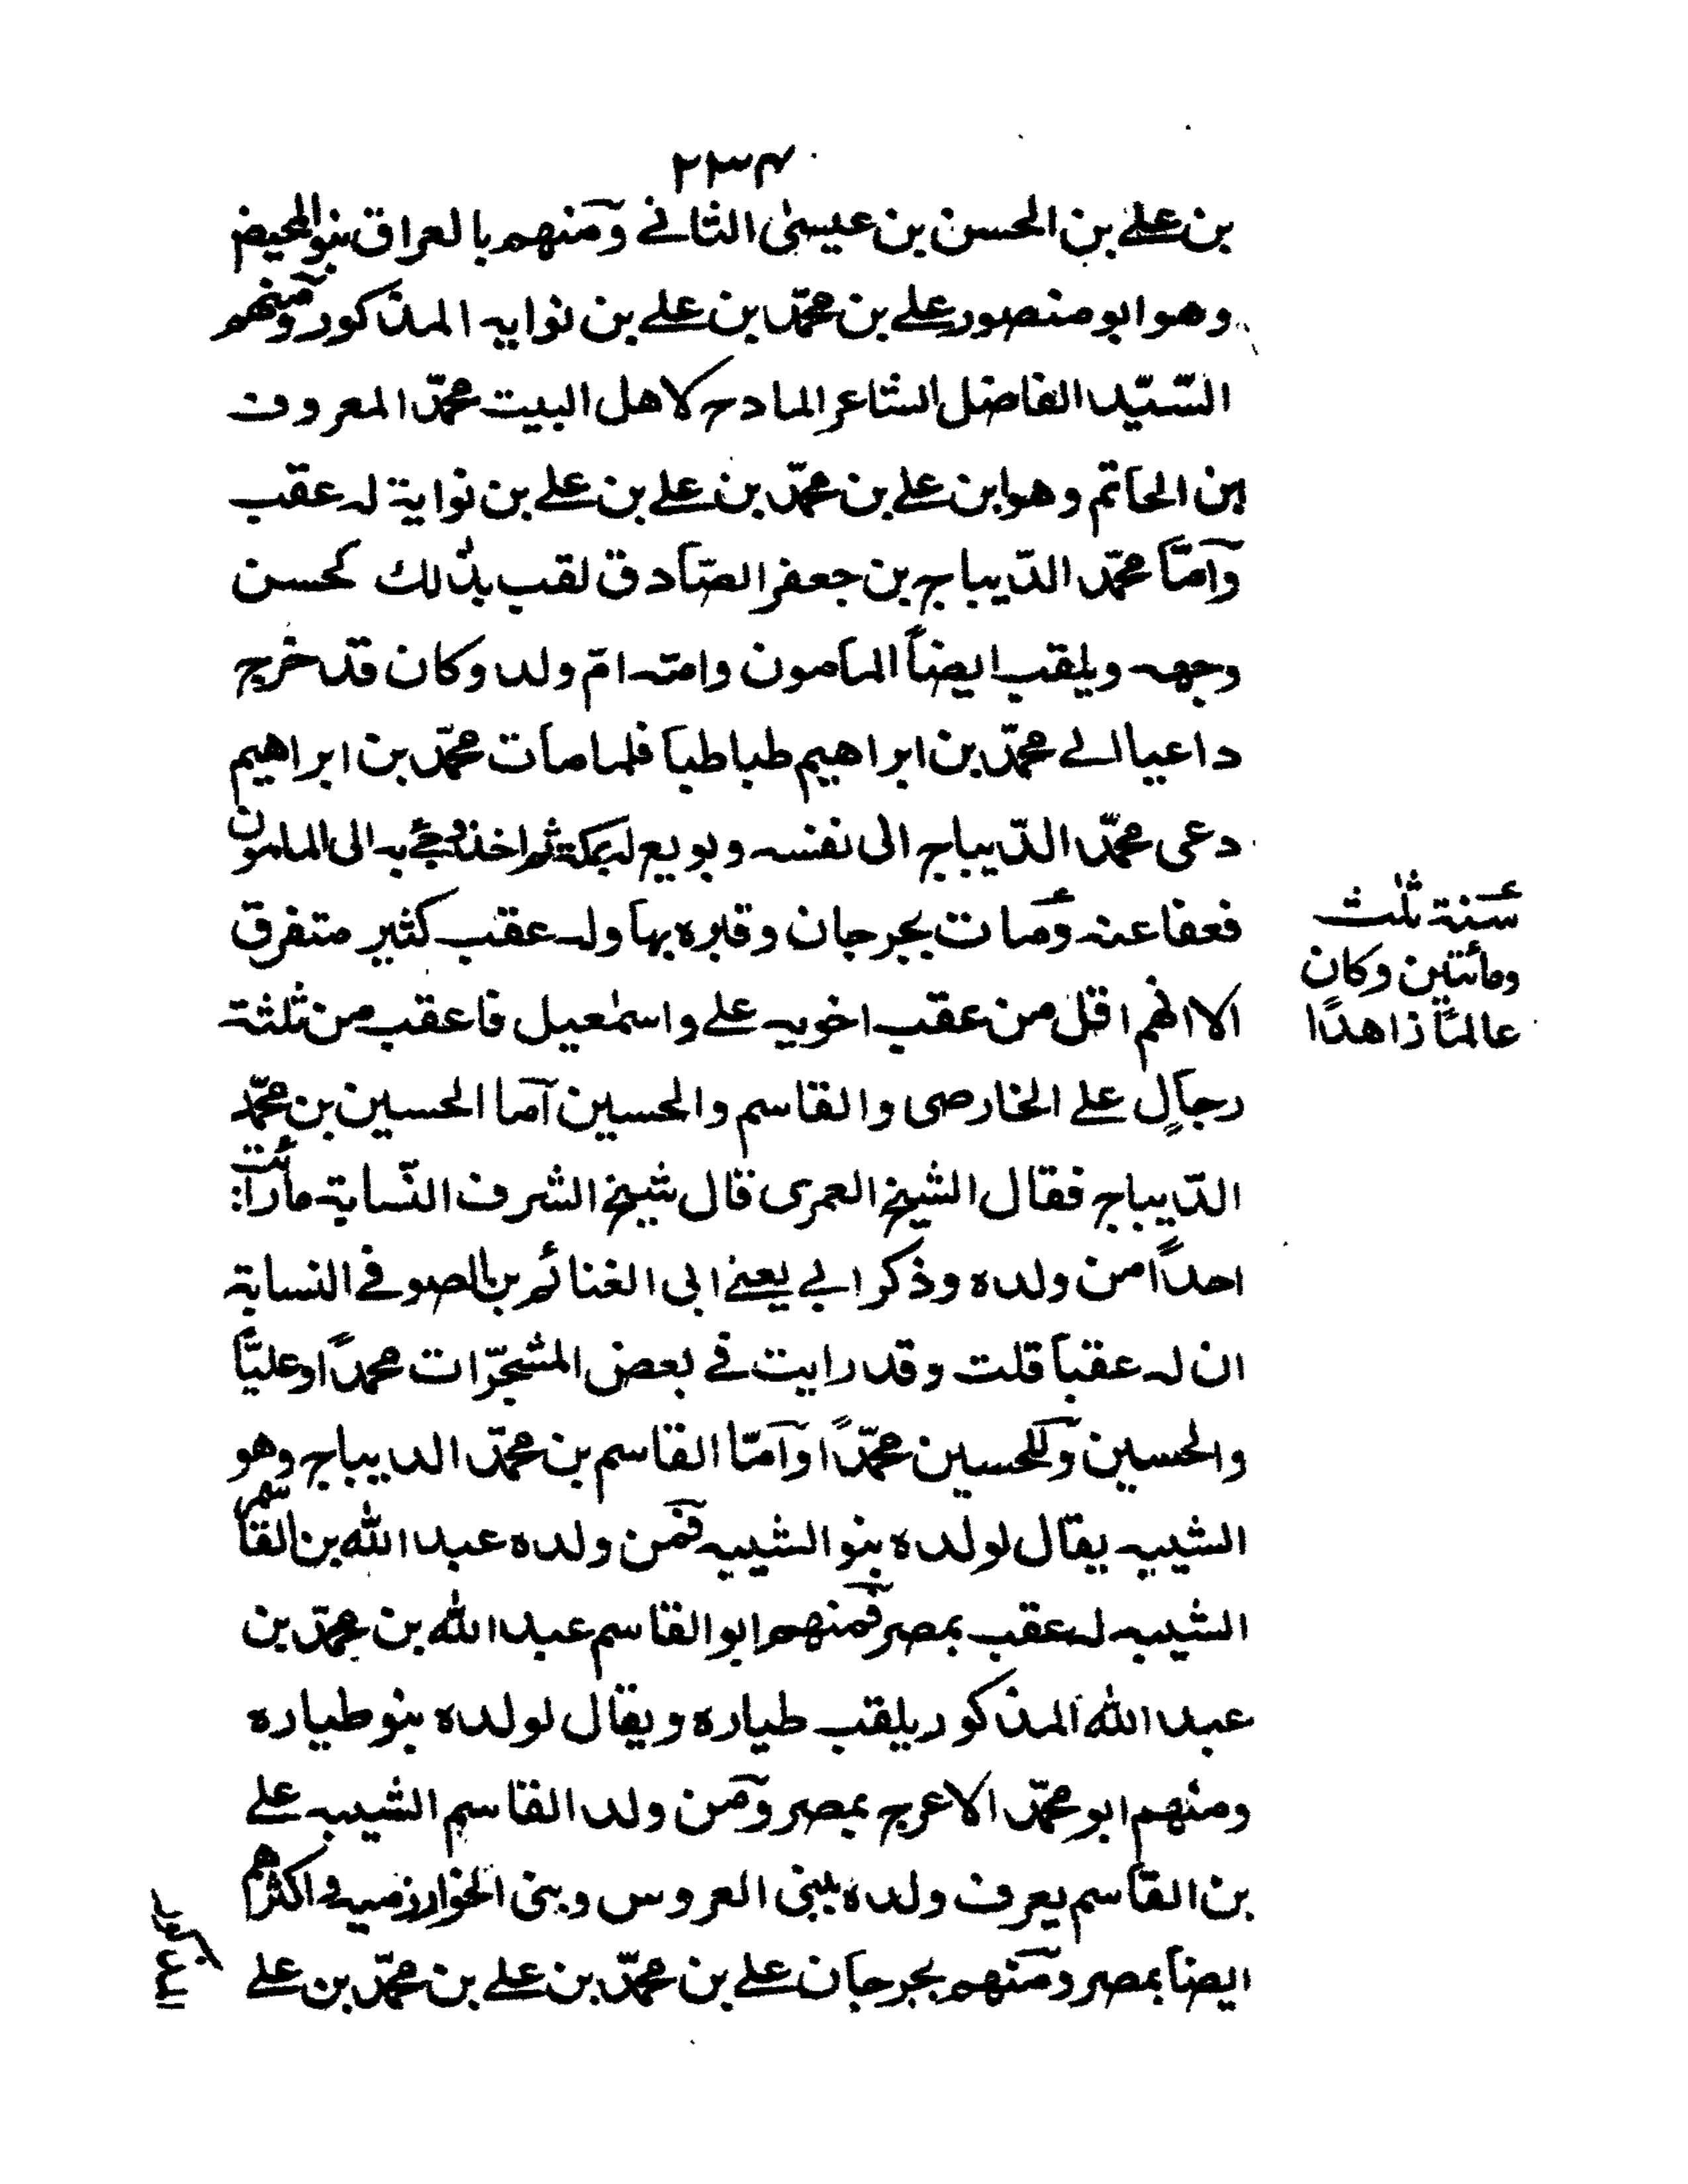 ٢٣٤
بن علے بن الحسن بن عیسیٰ الثانے ومنهم بالعراق بنو المحیض
وهو ابو منصور علے بن محمّد بن علے بن نوایه المذکور ومنهم
السّیّد الفاضل الشاعر المادح لاهل البیت محمّد المعروف
بابن الحاتم وهو ابن علے بن محمّد بن علے بن علے بن نوایة له عقب
وامّا محمّد الدّیباج بن جعفر الصّادق لقب بذٰلك لحسن
وجهه ویلقب ایضاً المامون وامّه امّ ولد وکان قد خرج
داعیا الے محمّد بن ابراهیم طباطبا فلما مات محمّد بن ابراهیم
دعی محمّد الدّیباج الی نفسه وبویع له بمکة ثم اخذ وجئ به الی المامون
فعفا عنه ومات بجرجان وقبره بها وله عقب کثیر متفرق
سنة ثلٰث
ومأتین وکان
عالمًا زاهدًا
الا انهم اقل من عقب اخویه علے واسمٰعیل فاعقب من ثلٰثة
رجالٍ علے الخارصی والقاسم والحسین اما الحسین بن محمّد
الدّیباج فقال الشیخ العمری قال شیخ الشرف النّسابة ما رأیت
احدًا من ولده وذکر ابے یعنے ابی الغنائم بن الصوفے النسابة
ان له عقبا قلت وقد رایت فے بعض المشجّرات محمدًا وعلیًّا
والحسین وللحسین محمّدًا وامّا القاسم بن محمّد الدیباج وهو
الشبیه یقال لولده بنو الشبیه فمن ولده عبد الله بن القاسم
الشبیه له عقب بمصر فمنهم ابو القاسم عبد الله بن محمّد بن
عبد الله المذکور یلقب طیاره ویقال لولده بنو طیاره
ومنهم ابو محمّد الاعرج بمصر ومن ولد القاسم الشبیه علے
بن القاسم یعرف ولده ببنی العروس وبنی الخوارزمیه واکثرهم
ایضاً بمصر ومنهم بجرجان علے بن محمّد بن علے بن محمّد بن علے